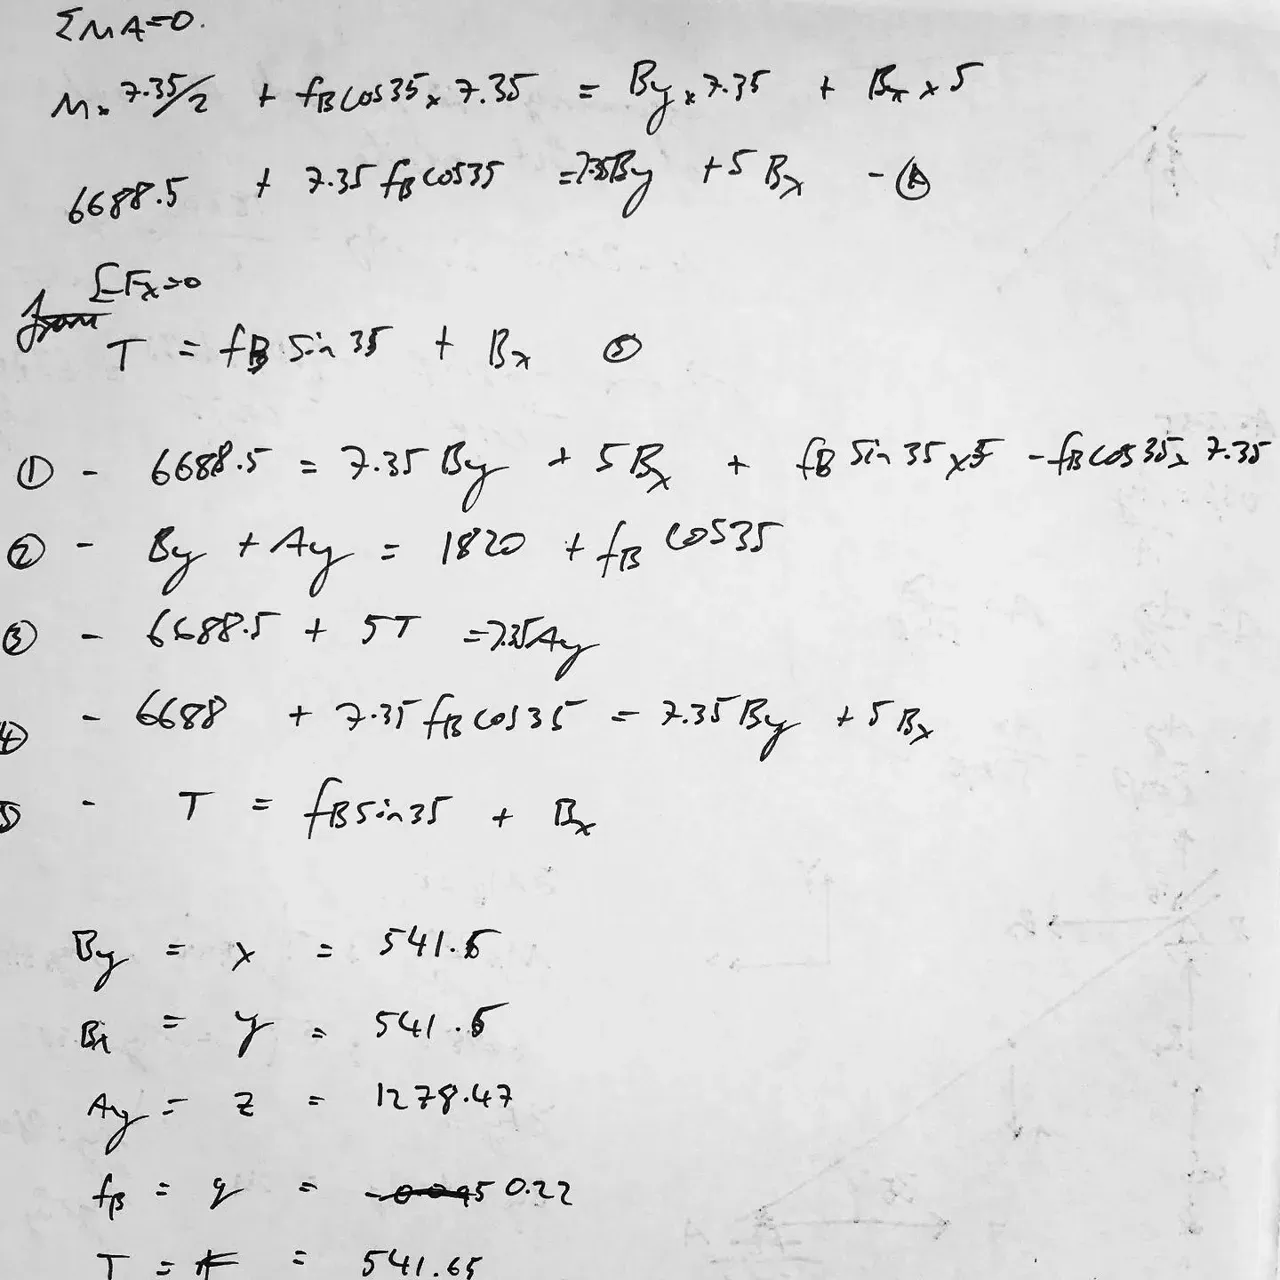 ΣMA=0.
M x 7.35/2 + fB cos35 x 7.35 = By x 7.35 + Bx x 5
6688.5 + 7.35 fB cos35 = 7.35By + 5 Bx - ④
ΣFx=0
T = fB Sin 35 + Bx ⑤
① - 6688.5 = 7.35 By + 5 Bx + fB Sin 35 x 5 - fB cos 35 x 7.35
② - By + Ay = 1820 + fB cos35
③ - 6688.5 + 5T = 7.35Ay
④ - 6688 + 7.35 fB cos35 = 7.35 By + 5 Bx
⑤ - T = fB sin35 + Bx
By = x = 541.6
Bx = y = 541.6
Ay = z = 1278.47
fB = q = 0.22
T = = 541.65